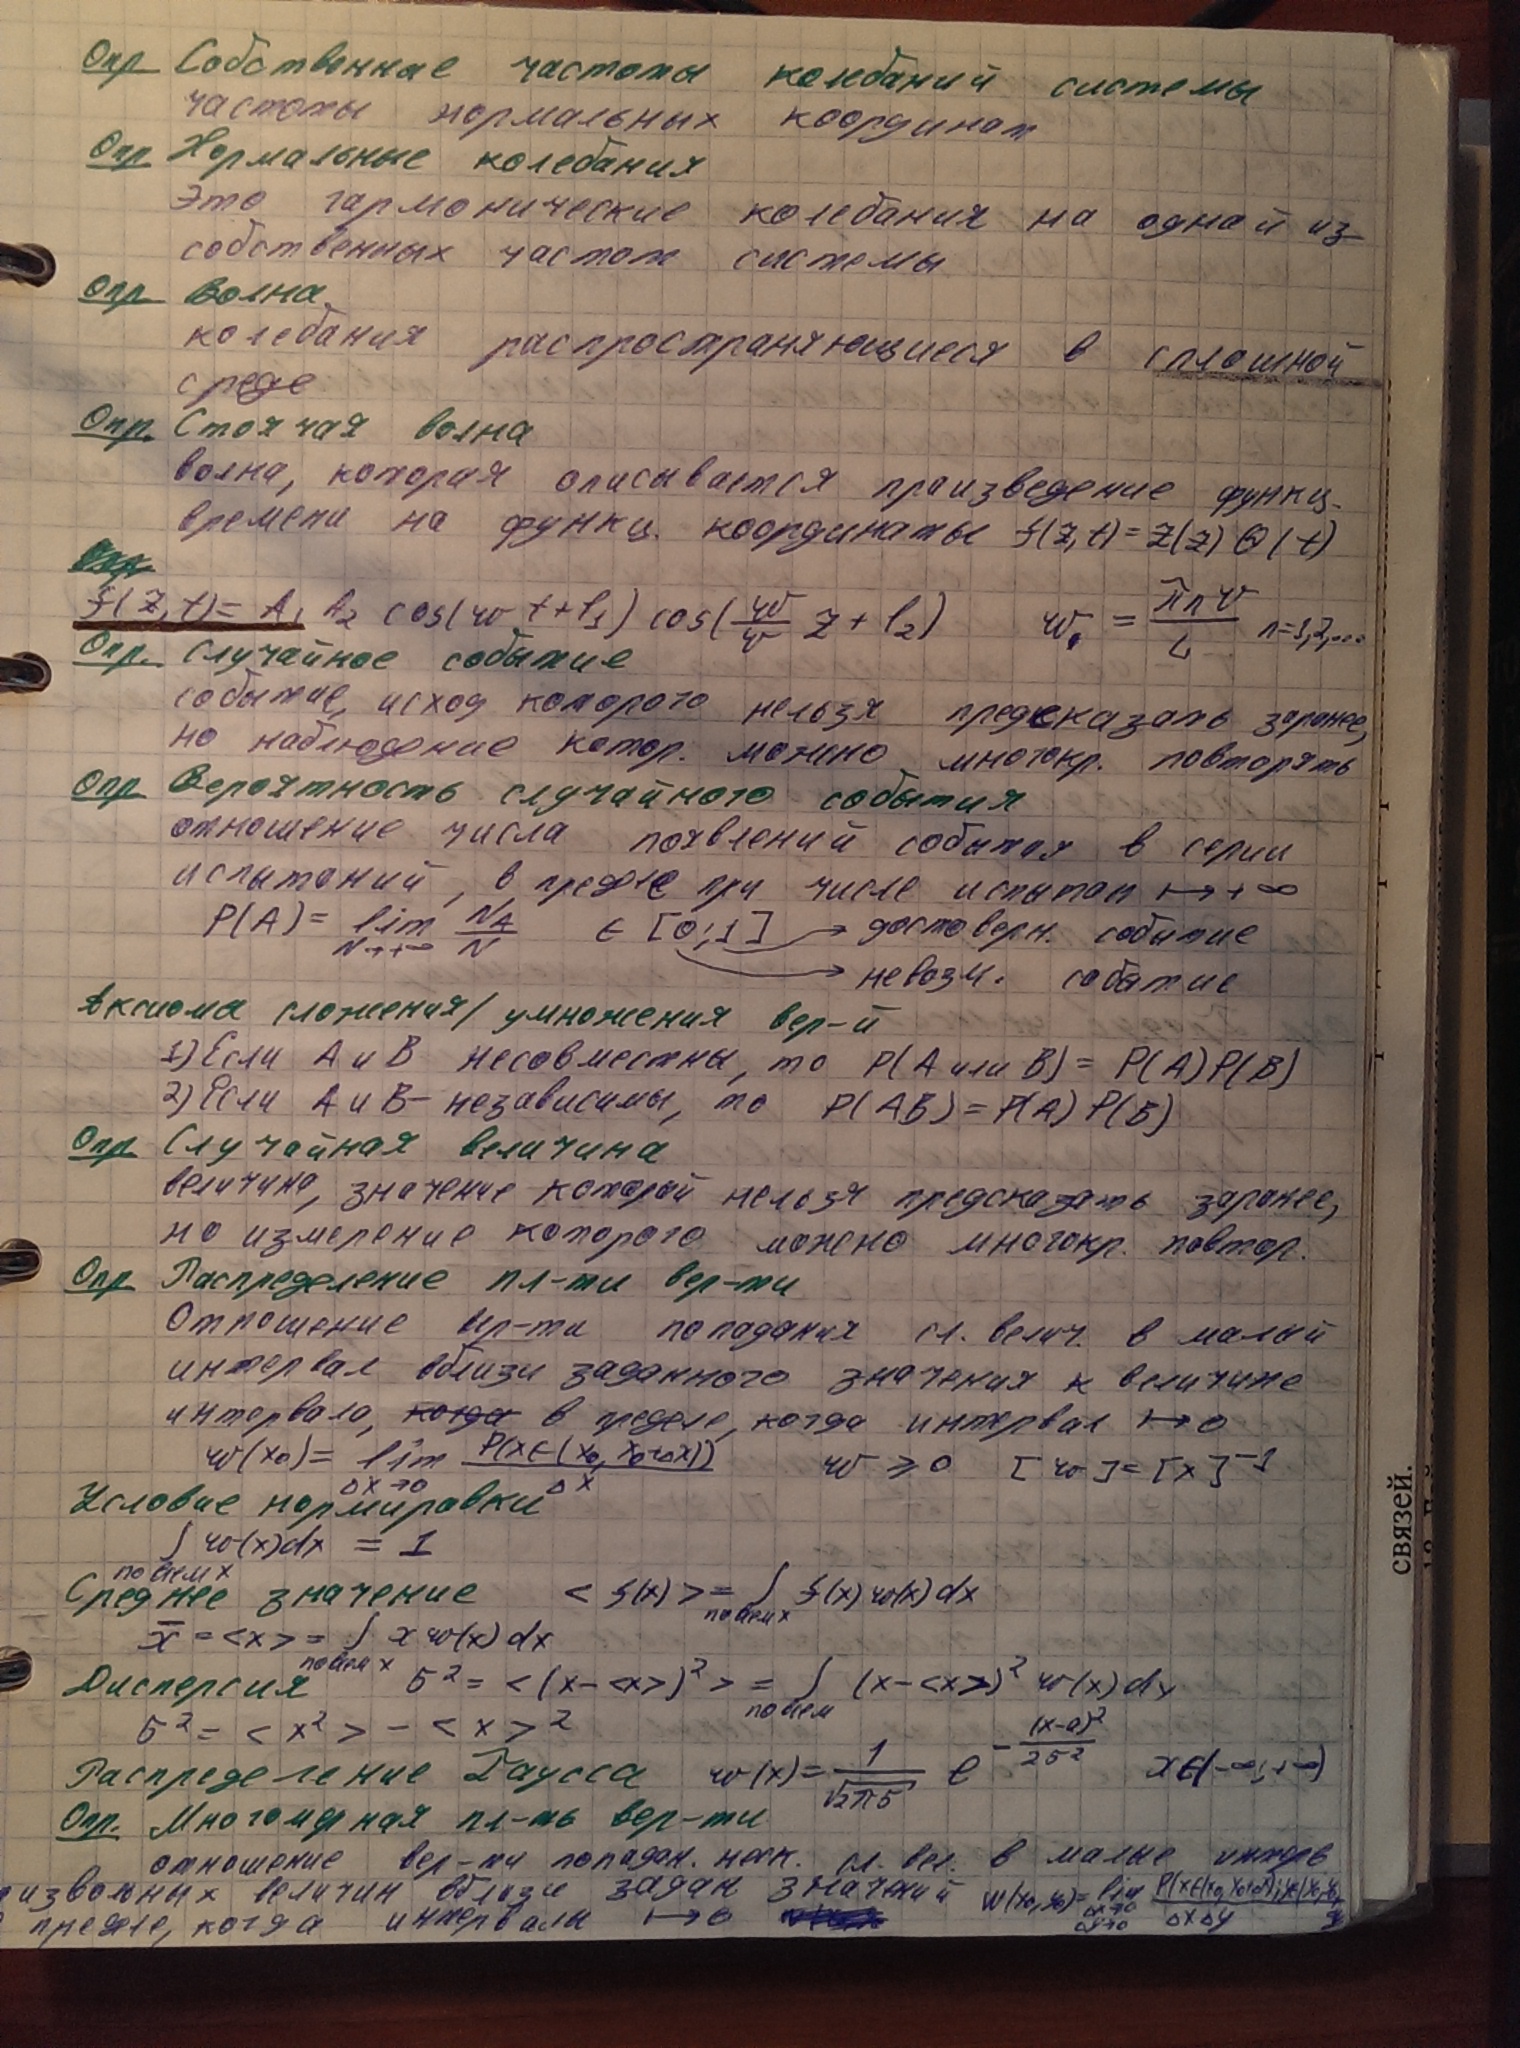 Опр Собственные частоты колебаний системы
частоты нормальных координат
Опр Нормальные колебания
Это гармонические колебания на одной из
собственных частот системы
Опр Волна
колебания распространяющиеся в сплошной
среде
Опр. Стоячая волна
волна, которая описывается произведение функц.
времени на функц. координаты f(z,t) = Z(z) Θ(t)
f(z,t) = A₁ A₂ cos(w t+l₁) cos(w/v z + l₂) wₙ = πnv/L n=1,2,...
Опр. Случайное событие
событие, исход которого нельзя предсказать заранее,
но наблюдение котор. можно многокр. повторять
Опр Вероятность случайного события
отношение числа появлений события в серии
испытаний, в пределе при числе испытан ↦ +∞
P(A) = lim N→+∞ N_A/N ∈ [0;1] → достоверн. событие
→ невозм. событие
Аксиома сложения/умножения вер-й
1) Если A и B несовместны, то P(A или B) = P(A)P(B)
2) Если A и B – независимы, то P(AB) = P(A) P(B)
Опр Случайная величина
величина, значение которой нельзя предсказать заранее,
но измерение которого можно многокр. повтор.
Опр Распределение пл-ти вер-ти
Отношение вер-ти попадания сл. велич. в малый
интервал вблизи заданного значения к величине
интервала, когда в пределе, когда интервал ↦ 0
w(x₀) = lim Δx→0 P(x∈(x₀, x₀+Δx))/Δx w ⩾ 0 [w] = [x]⁻¹
Условие нормировки
∫ по всем x w(x)dx = 1
Среднее значение <f(x)> = ∫ по всем x f(x) w(x) dx
x̄ = <x> = ∫ по всем x x w(x) dx
Дисперсия σ² = <(x-<x>)²> = ∫ по всем (x-<x>)² w(x) dx
σ² = <x²> - <x>²
Распределение Гаусса w(x) = 1/√2πσ e^-(x-a)²/2σ² x∈(-∞;+∞)
Опр. Многомерная пл-ть вер-ти
отношение вер-ти попадан. неск. сл. вел. в малые интерв
извольных величин вблизи задан значений w(x₀,y₀) = lim Δx→0 Δy→0 /ΔxΔy
пределе, когда интервалы ↦ 0
связей.